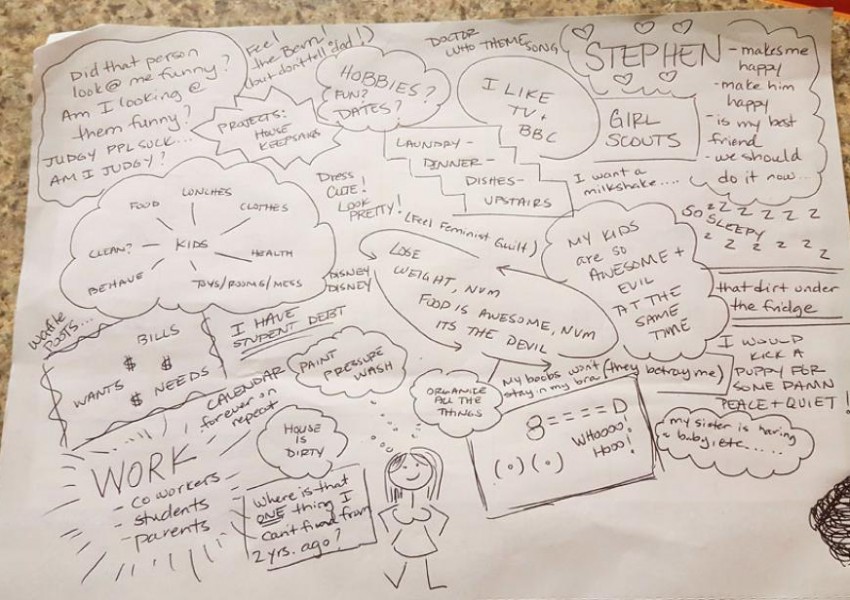 Did that person
look @ me funny?
Am I looking @
them funny?
JUDGY PPL SUCK...
AM I JUDGY?
Feel
the Bern!
(but don't tell dad!)
PROJECTS:
HOUSE
KEEPSAKES
HOBBIES?
FUN?
DATES?
DOCTOR
WHO THEME
SONG
I LIKE
TV +
BBC
STEPHEN
- makes me
happy
- make him
happy
- is my best
friend
- we should
do it now...
GIRL
SCOUTS
LAUNDRY -
DINNER -
DISHES -
UPSTAIRS
I want a
milkshake....
SO SLEEPY
z z z z z z
z z z z z z
FOOD
LUNCHES
CLOTHES
CLEAN?
KIDS
HEALTH
BEHAVE
TOYS/ROOMS/MESS
Dress
CUTE!
LOOK
PRETTY!
(Feel Feminist Guilt)
DISNEY
DISNEY
LOSE
WEIGHT, NVM
FOOD IS AWESOME, NVM
ITS THE DEVIL
MY KIDS
are so
AWESOME +
EVIL
AT THE
SAME
TIME
that dirt under
the fridge
I WOULD
KICK A
PUPPY FOR
SOME DAMN
PEACE + QUIET!
my sister is having
a baby, etc......
Waffle
Posts...
BILLS
$ $
WANTS $ NEEDS
I HAVE
STUDENT DEBT
CALENDAR
forever on
repeat
PAINT
PRESSURE
WASH
ORGANIZE
ALL THE
THINGS
My boobs won't
stay in my bra
(they betray me)
8====D
WHOOOO!
HOOO!
(o)(o)
HOUSE
IS
DIRTY
WORK
- coworkers
- students
- parents
Where is that
ONE thing I
can't find from
2 yrs. ago?